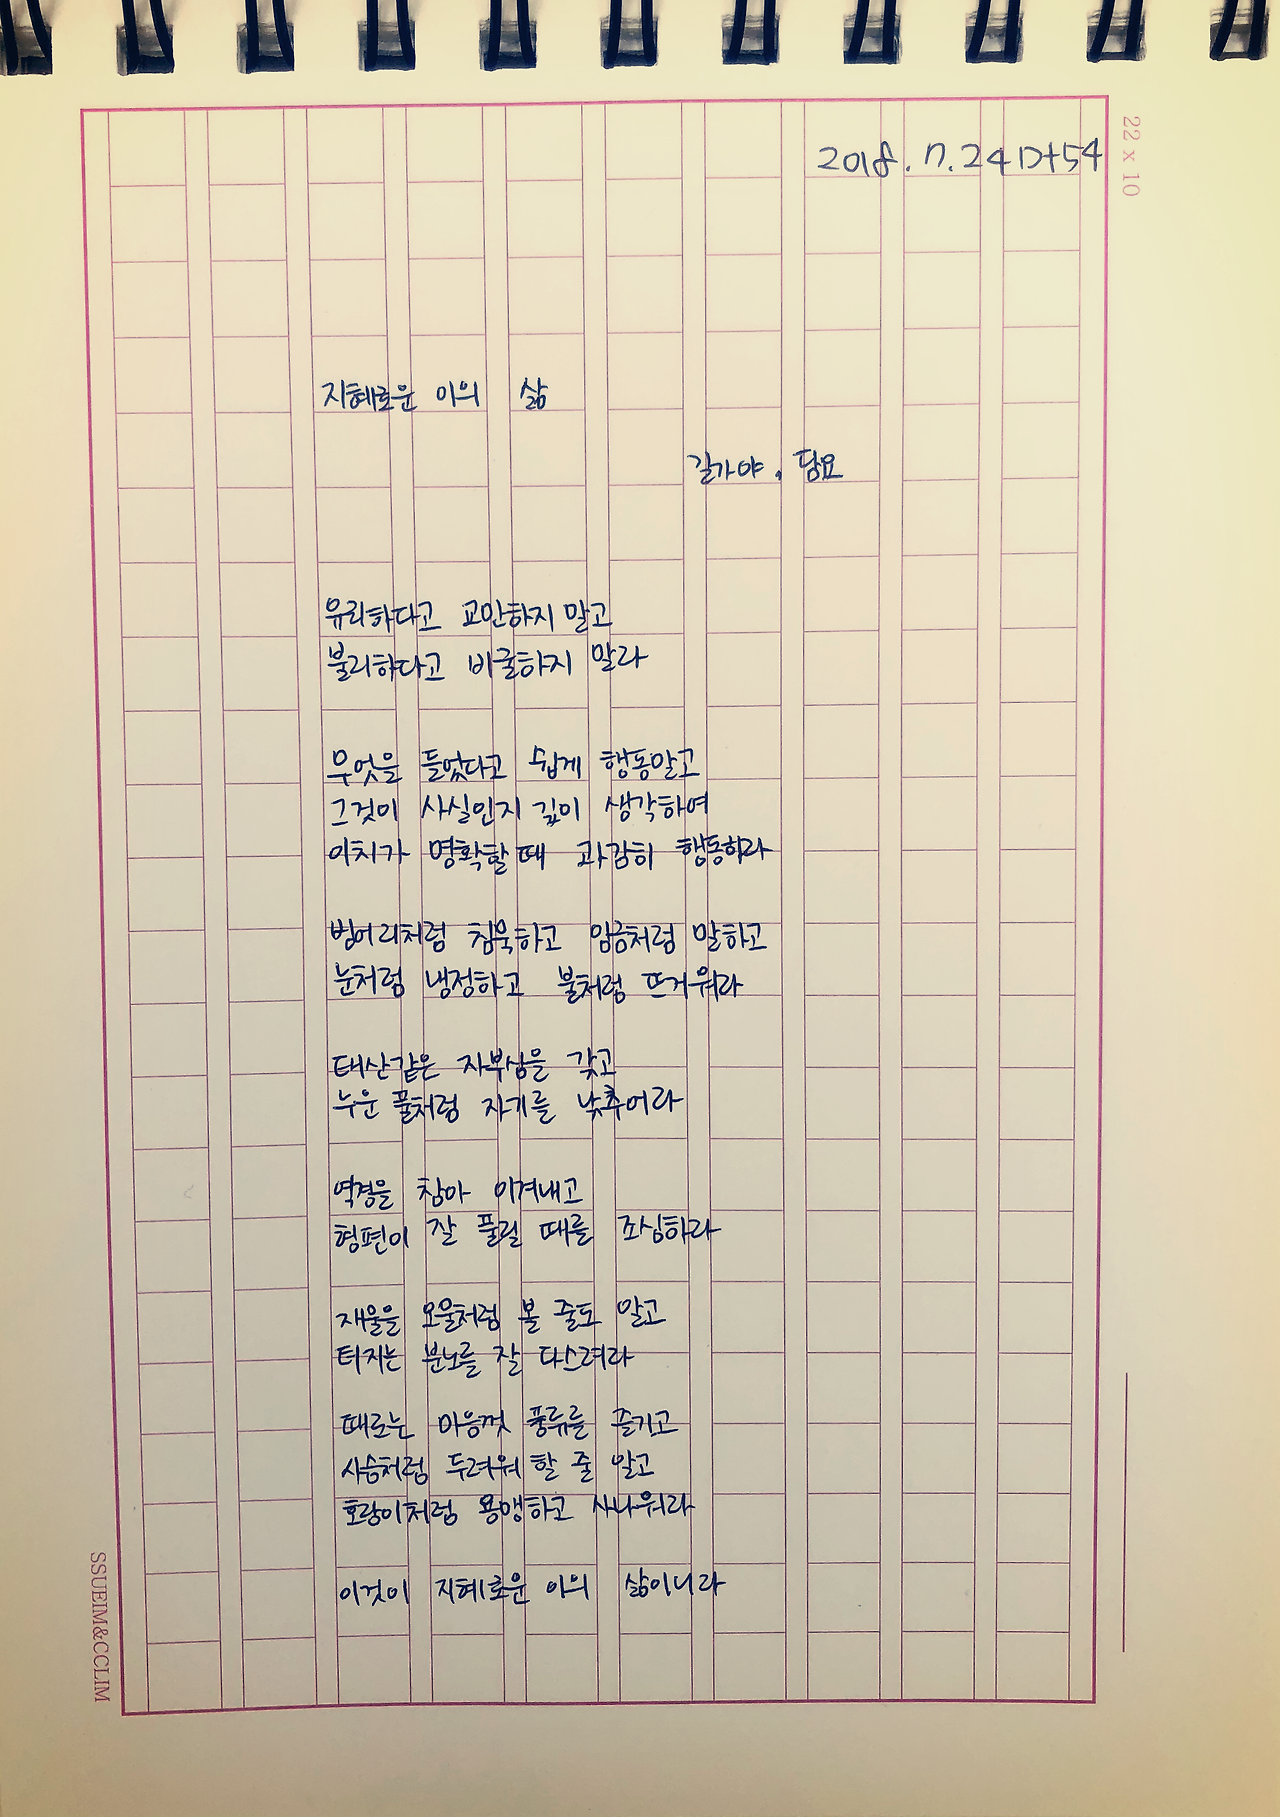 2018. 7. 24 D+54
22 x 10
지혜로운 이의 삶
길가야. 담요
유리하다고 교만하지 말고
불리하다고 비굴하지 말라
무엇을 들었다고 쉽게 행동말고
그것이 사실인지 깊이 생각하여
이치가 명확할 때 과감히 행동하라
벙어리처럼 침묵하고 임금처럼 말하고
눈처럼 냉정하고 불처럼 뜨거워라
태산같은 자부심을 갖고
누운 풀처럼 자기를 낮추어라
역경을 참아 이겨내고
형편이 잘 풀릴 때를 조심하라
재물을 오물처럼 볼 줄도 알고
터지는 분노를 잘 다스려라
때로는 마음껏 풍류를 즐기고
사슴처럼 두려워 할 줄 알고
호랑이처럼 용맹하고 사나워라
이것이 지혜로운 이의 삶이니라
SSUEIM&CCLIM